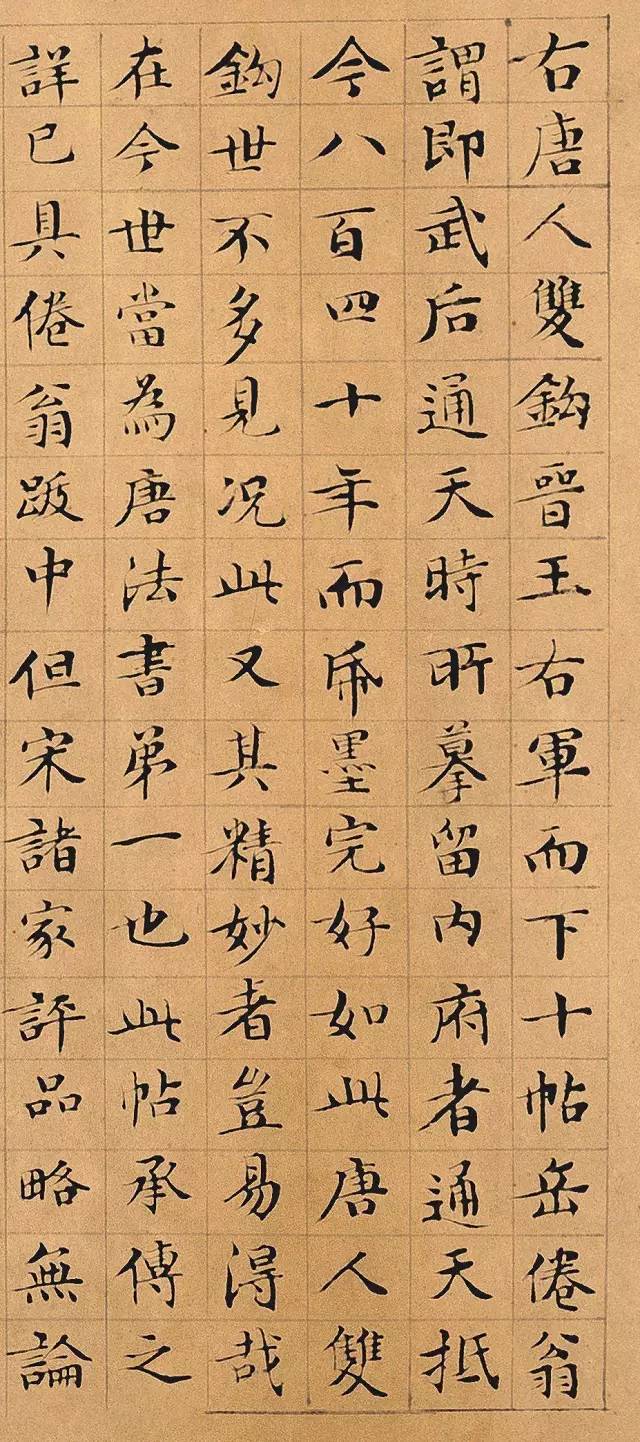 右唐人雙鈎晉王右軍而下十帖岳倦翁
謂即武后通天時所摹留內府者通天抵
今八百四十年而帋墨完好如此唐人雙
鈎世不多見况此又其精妙者豈易得哉
在今世當為唐法書弟一也此帖承傳之
詳已具倦翁跋中但宋諸家評品略無論